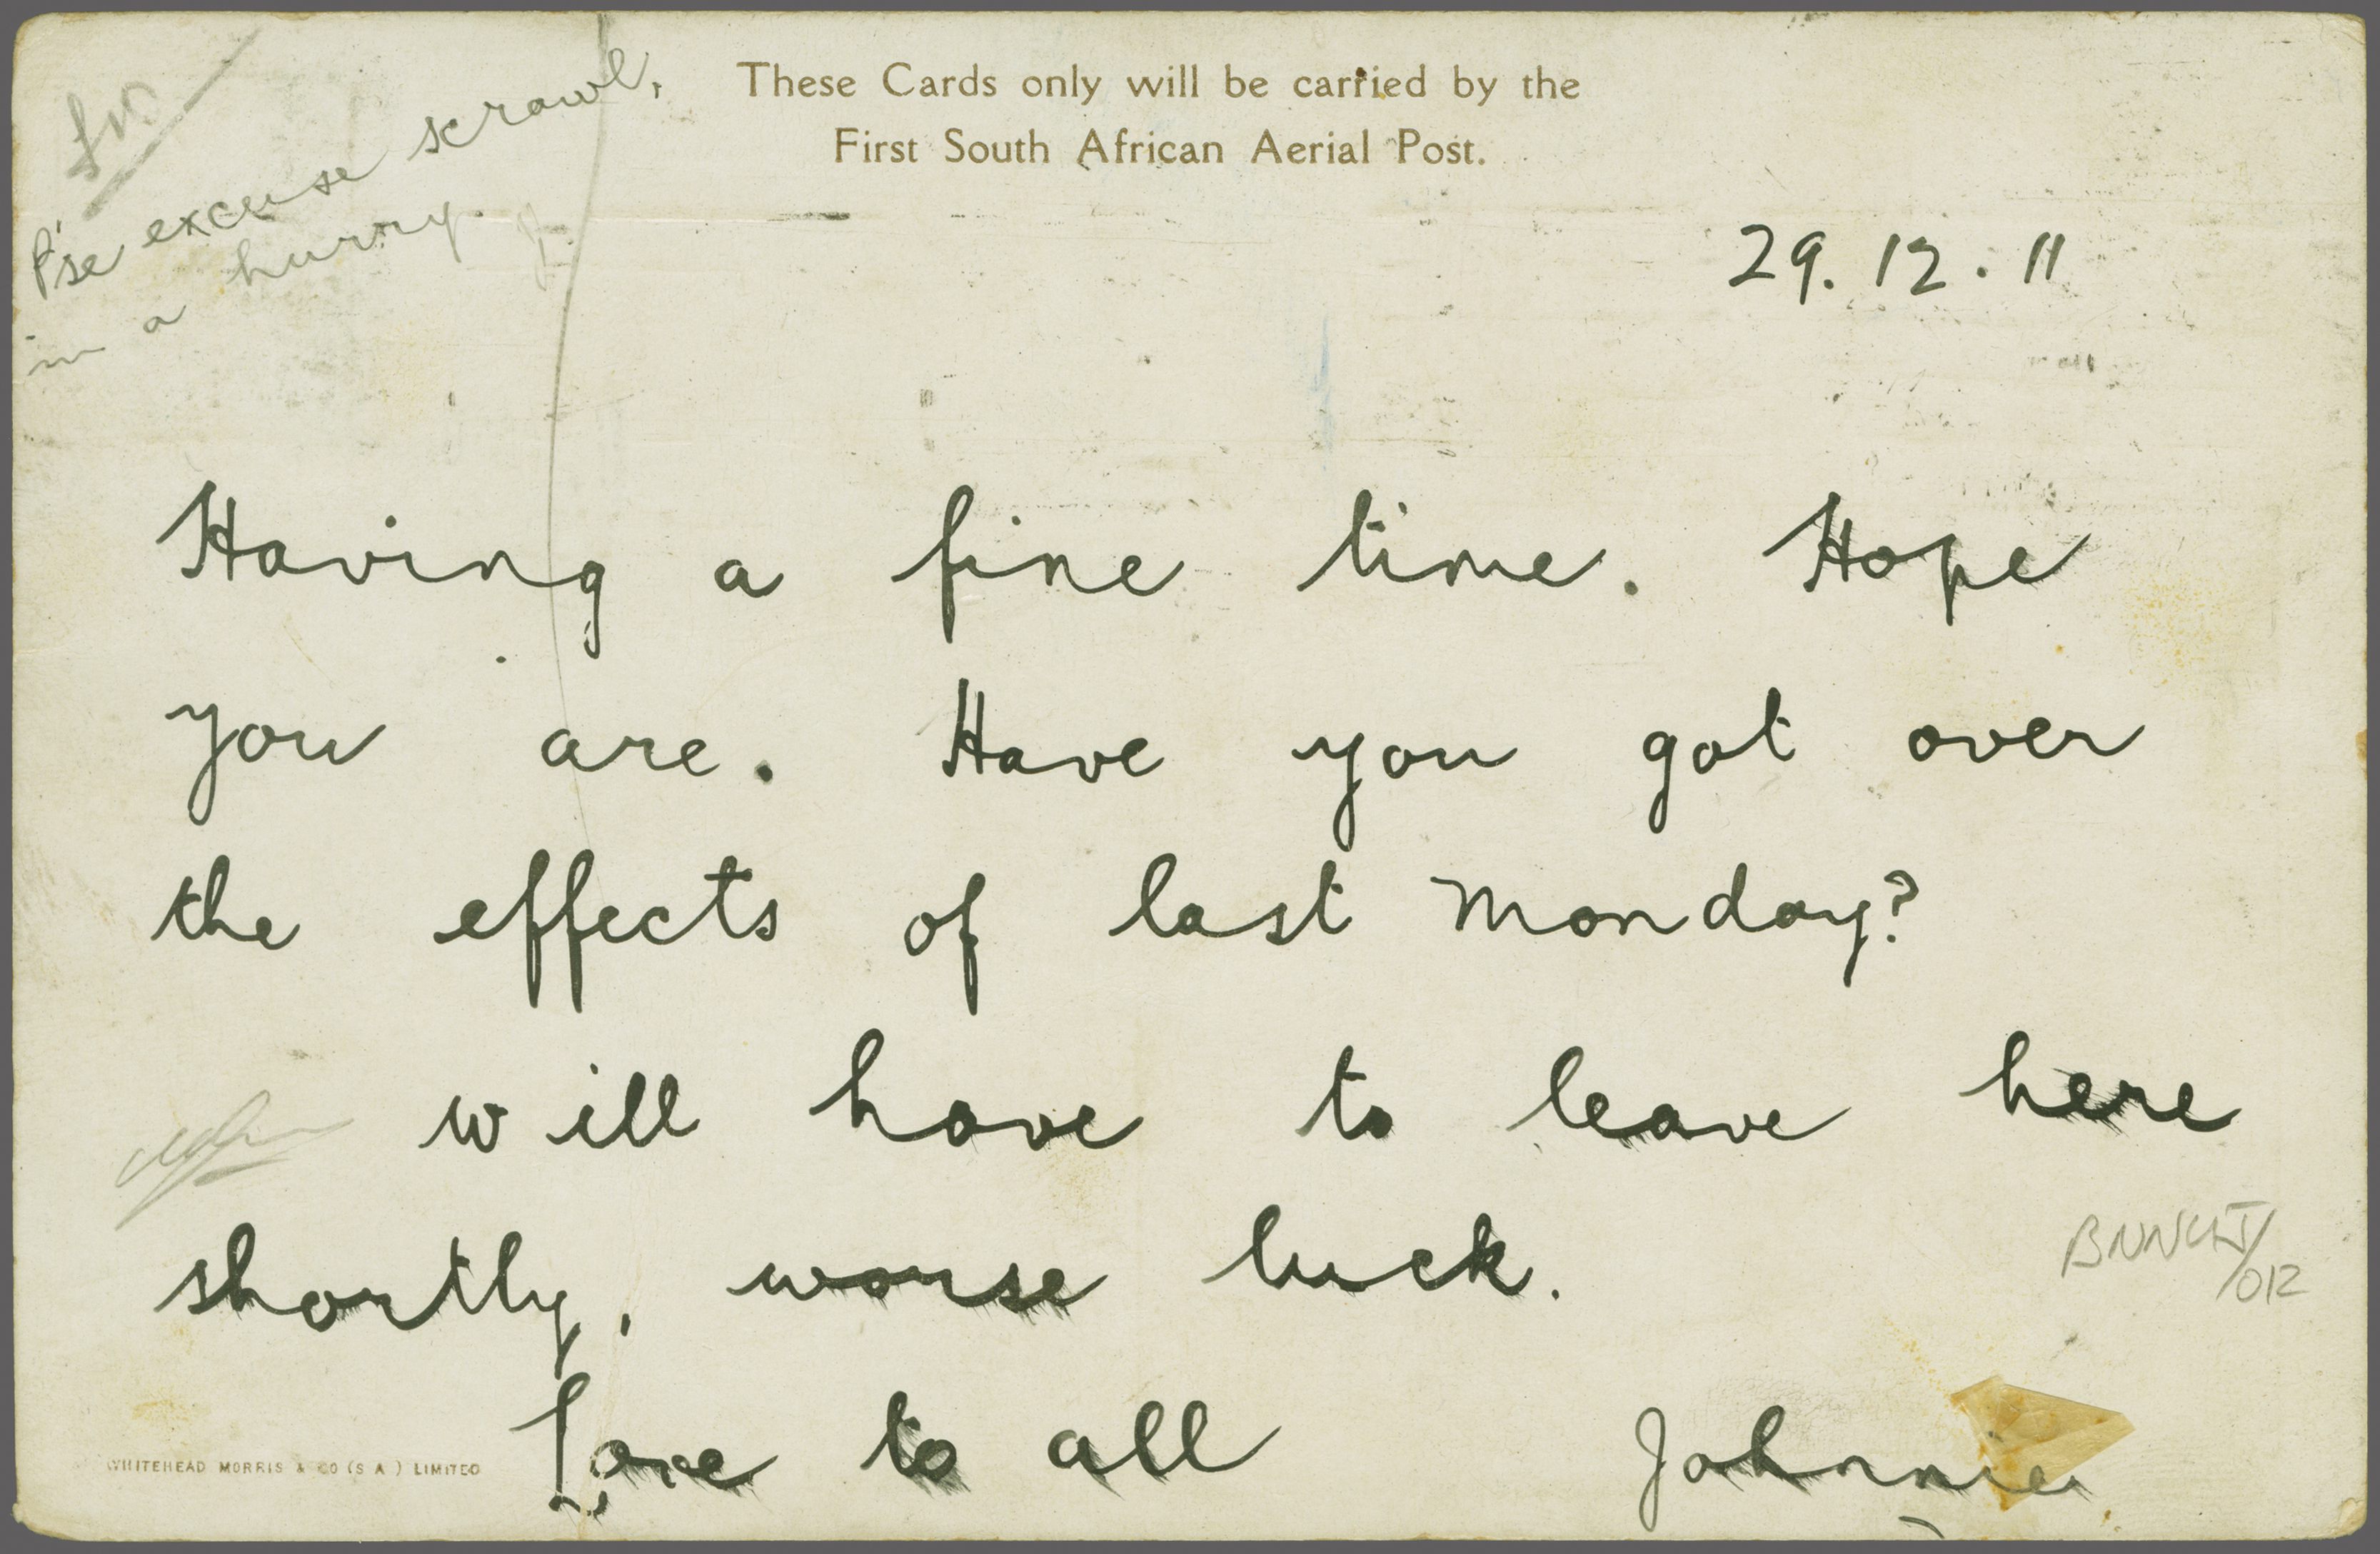 These Cards only will be carried by the
First South African Aerial Post.
P'se excuse scrawl,
in a hurry. J.
29.12.11
Having a fine time. Hope
you are. Have you got over
the effects of last Monday?
will have to leave here
shortly, worse luck.
Love to all Johnnie
WHITEHEAD MORRIS & CO (S A) LIMITED